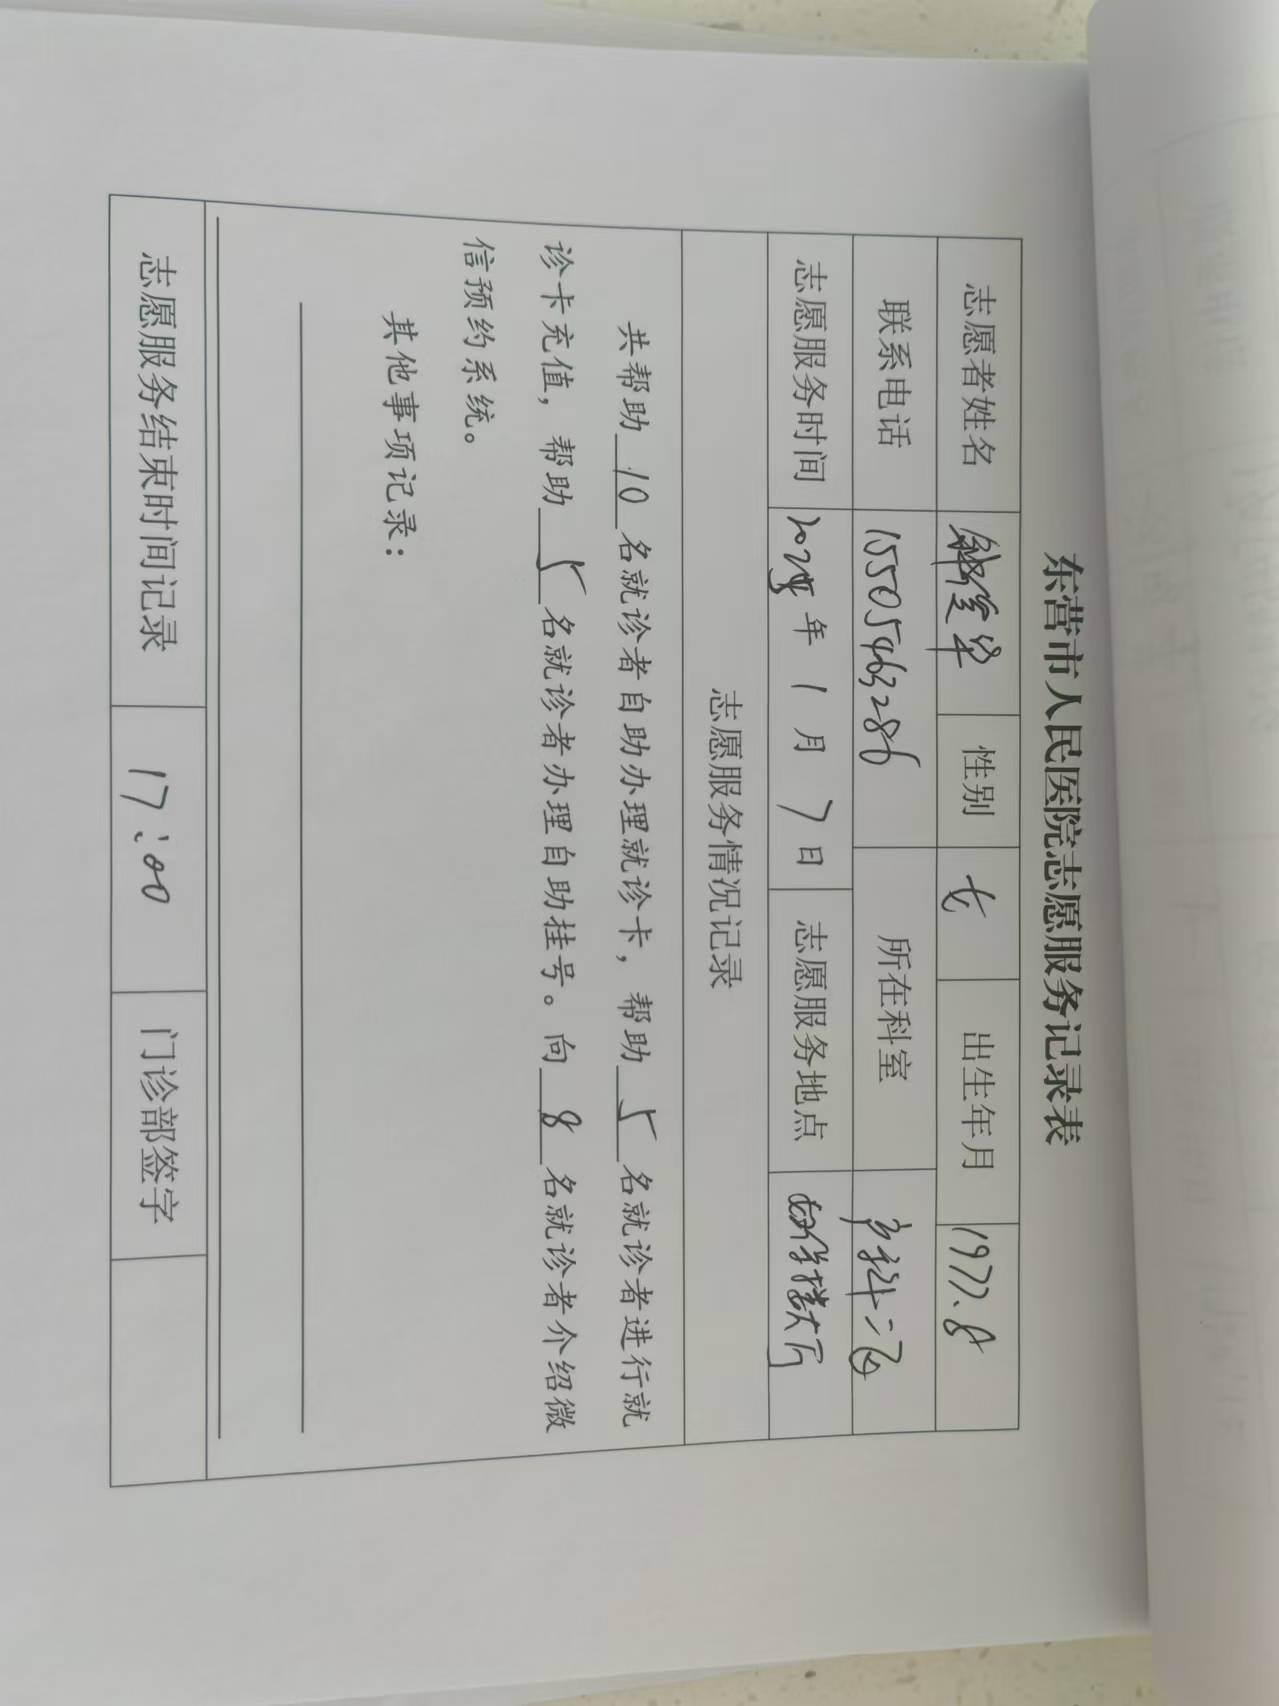 东营市人民医院志愿服务记录表
志愿者姓名 性别 女 出生年月 1977.8
联系电话 15505463286 所在科室 二
志愿服务时间 年 1 月 7 日 志愿服务地点 大厅
志愿服务情况记录
共帮助 10 名就诊者自助办理就诊卡，帮助 5 名就诊者进行就
诊卡充值，帮助 5 名就诊者办理自助挂号。向 8 名就诊者介绍微
信预约系统。
其他事项记录：
志愿服务结束时间记录 17:00 门诊部签字